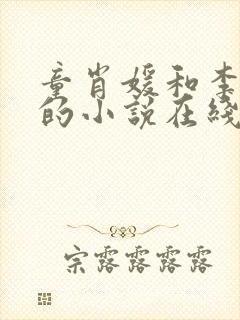 童肖媛和李
的小说在线
宗露露露露